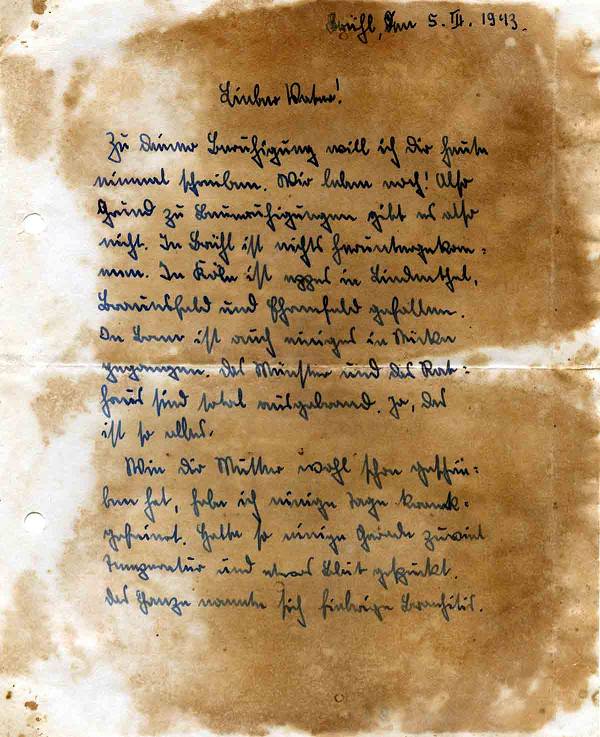 Brühl, den 5. III. 1943.
Lieber Vater!
Zu Deiner Beruhigung will ich Dir heute
einmal schreiben. Wir leben noch! Also
Grund zu Beunruhigungen gibt es also
nicht. In Brühl ist nichts heruntergekom=
men. In Köln ist eppes in Lindenthal,
Braunsfeld und Ehrenfeld gefallen.
In Bonn ist auch einiges in Sticke
gegangen. Das Münster und das Rat=
haus sind total ausgebrannt. Ja, das
ist so alles.
Wie Dir Mutter wohl schon geschrie=
ben hat, habe ich einige Tage krank=
gefeiert. Hatte so einige Grade zuviel
Temperatur und etwas Blut gespuckt.
Das Ganze nannte sich fiebrige Bronchitis.